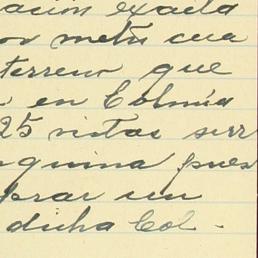 ación exacta
por metro cua
terreno que
en Colonia
25 vistas serr
quina pues
prar un
dicha Col.